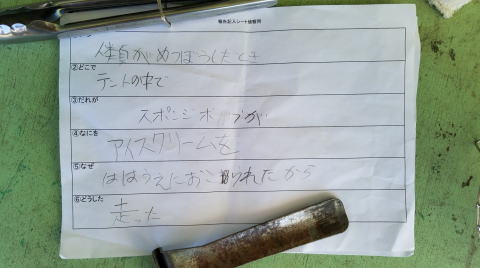 人類がめつぼうしたとき
②どこで
テントの中で
③だれが
スポンジボブが
④なにを
アイスクリームを
⑤なぜ
ははうえにおこられたから
⑥どうした
走った